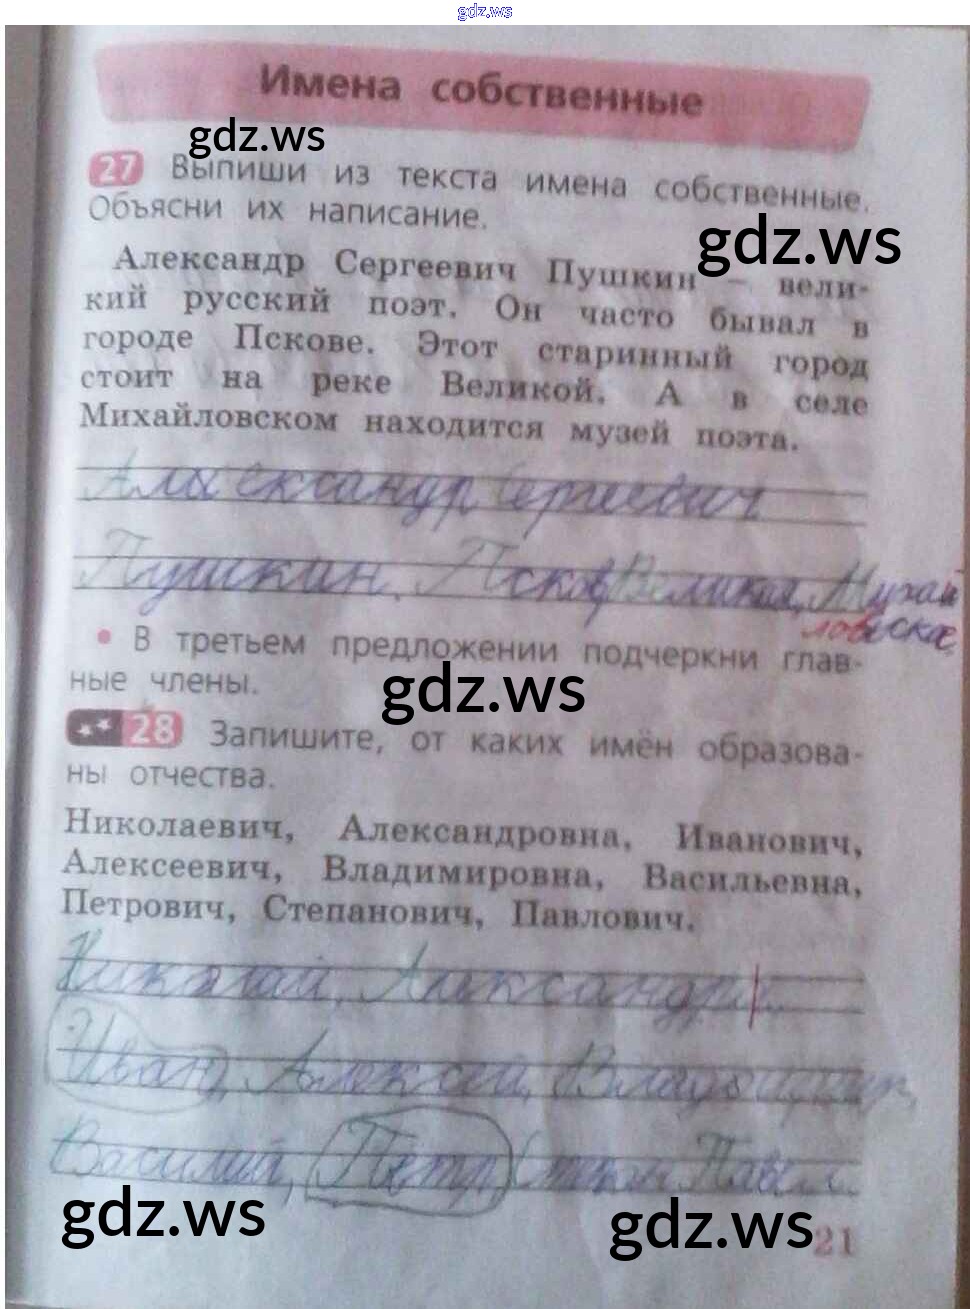 gdz.ws
Имена собственные
gdz.ws
27 Выпиши из текста имена собственные.
Объясни их написание.
gdz.ws
Александр Сергеевич Пушкин – вели-
кий русский поэт. Он часто бывал в
городе Пскове. Этот старинный город
стоит на реке Великой. А в селе
Михайловском находится музей поэта.
Александр Сергеевич
Пушкин, Псков, Великая, Михай
ловское.
• В третьем предложении подчеркни глав-
ные члены.
gdz.ws
28 Запишите, от каких имён образова-
ны отчества.
Николаевич, Александровна, Иванович,
Алексеевич, Владимировна, Васильевна,
Петрович, Степанович, Павлович.
Николай, Александр
Иван, Алексей, Владимир,
Василий, Петр, Степан Павел.
gdz.ws
gdz.ws
21